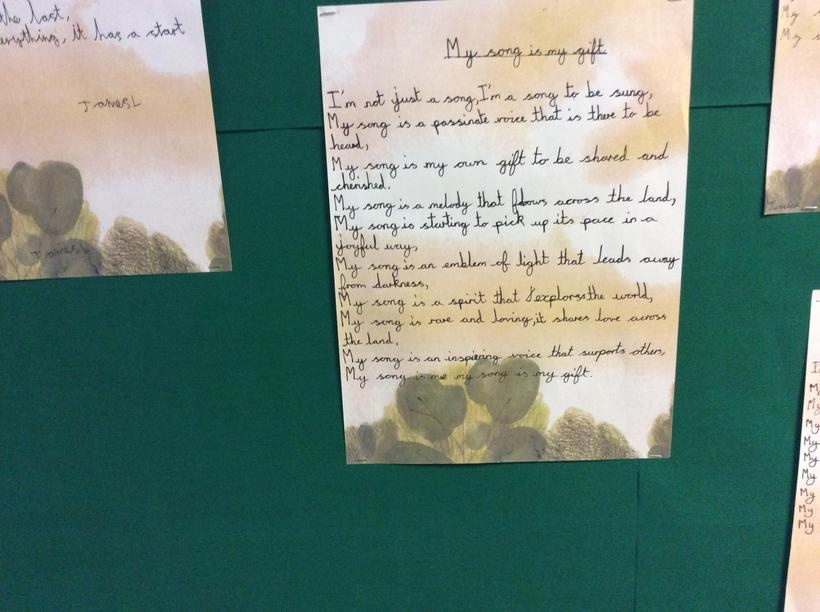 the last,
everything, it has a start
James L
James L
My song is my gift
I'm not just a song, I'm a song to be sung,
My song is a passinate voice that is there to be
heard,
My song is my own gift to be shared and
cherished.
My song is a melody that flows across the land,
My song is starting to pick up its pace in a
joyful way,
My song is an emblem of light that leads away
from darkness,
My song is a spirit that explores the world,
My song is rare and loving, it shares love across
the land,
My song is an inspiering voice that surports others,
My song is me my song is my gift.
My
My
My
My
My
My
My
My
My
My